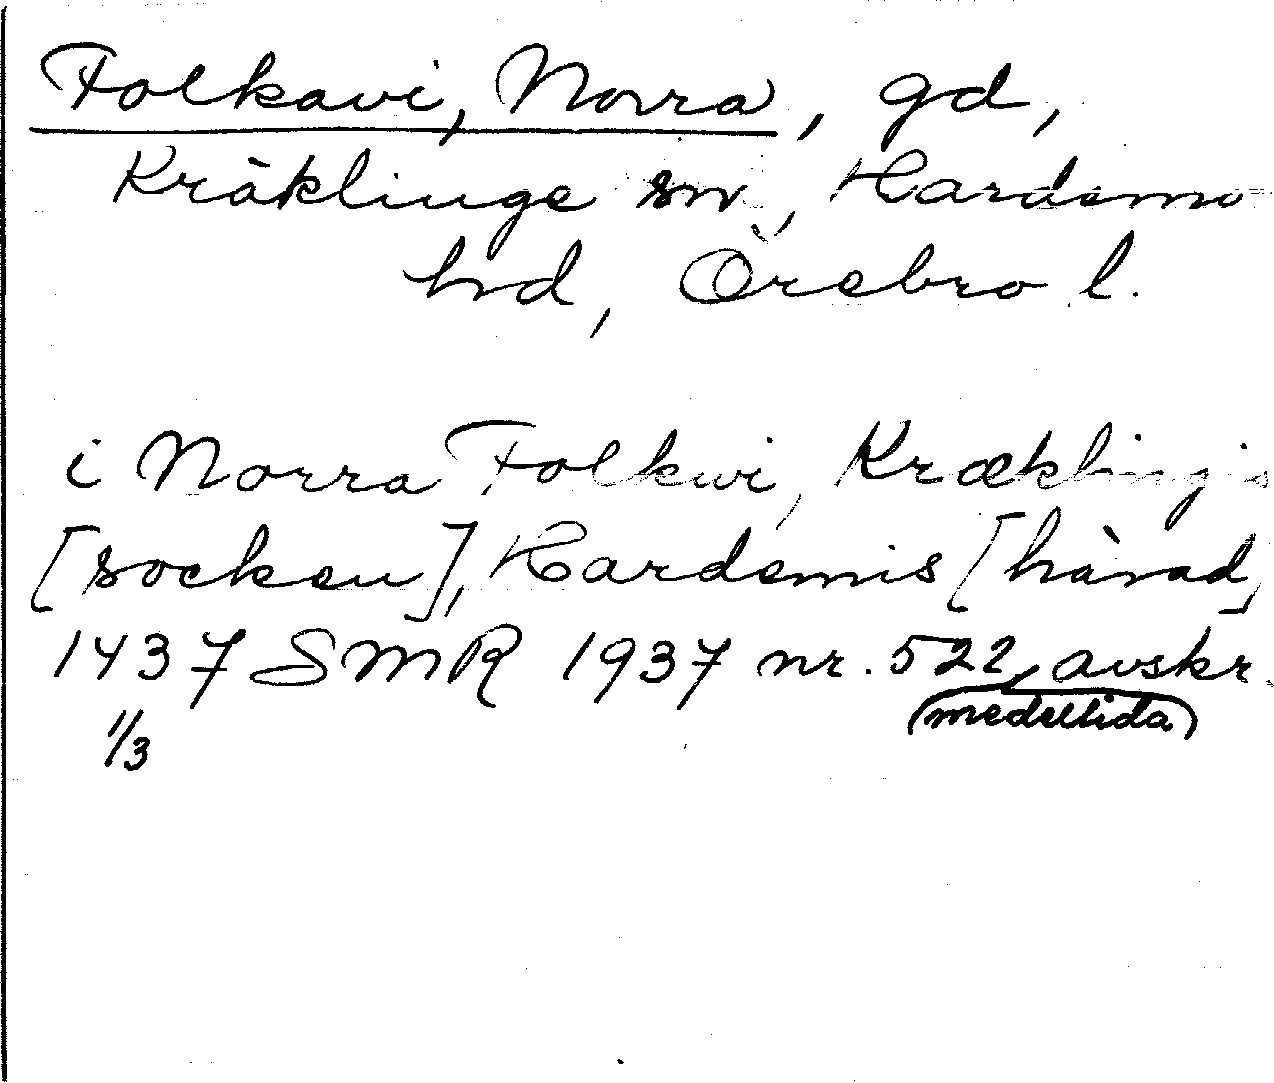 Folkavi, Norra, gd,
Kräklinge sn, Hardemo
hd, Örebro l.
i Norra Folkwi, Kræklingis
[socken], Hardemis [härad]
1437 SMR 1937 nr. 522, avskr.
(medeltida)
1/3